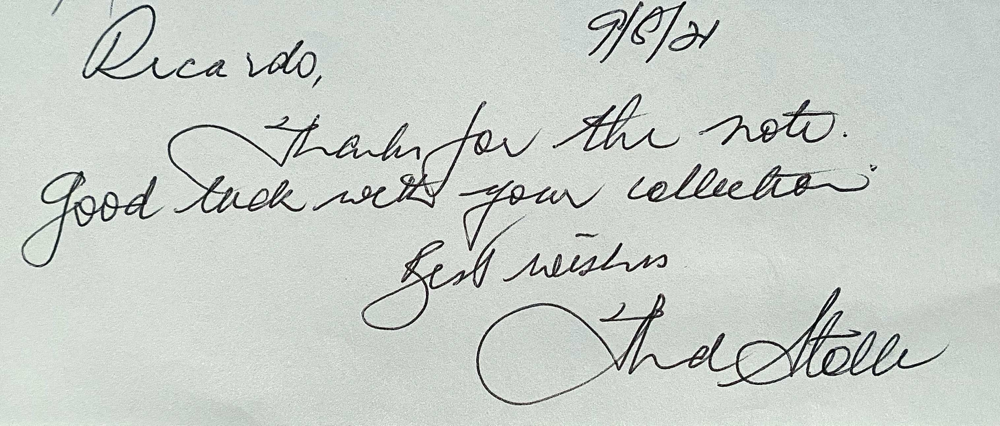 9/8/21
Ricardo,
Thanks for the note.
Good luck with your collection
Best wishes
Thad Stolle